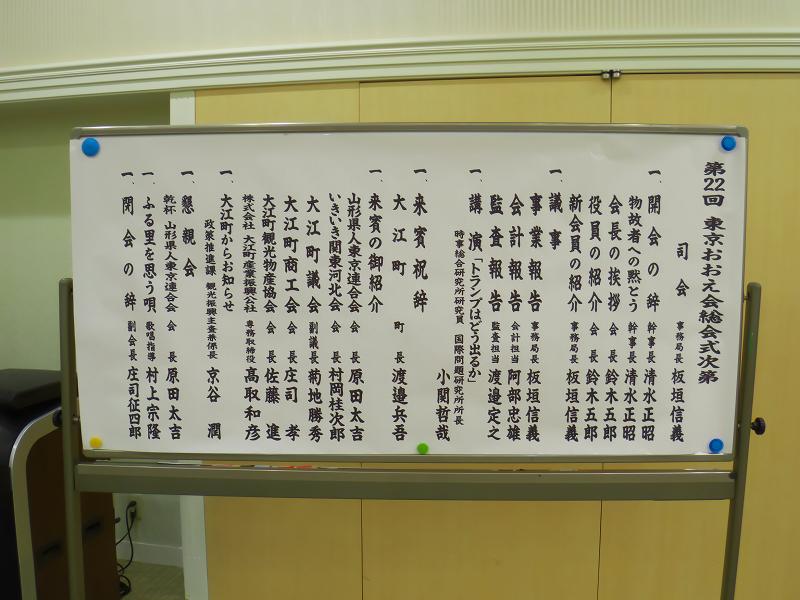 第22回 東京おおえ会総会式次第
司会 事務局長 板垣信義
一、開会の辞 幹事長 清水正昭
物故者への黙とう 幹事長 清水正昭
会長の挨拶 会長 鈴木五郎
役員の紹介 会長 鈴木五郎
新会員の紹介 事務局長 板垣信義
一、議事
事業報告 事務局長 板垣信義
会計報告 会計担当 阿部忠雄
監査報告 監査担当 渡邉定之
一、講演「トランプはどう出るか」
時事総合研究所研究員 国際問題研究所所長
小関哲哉
一、来賓祝辞
大江町 町長 渡邉兵吾
一、来賓の御紹介
山形県人東京連合会 会長 原田太吉
いきいき関東河北会 会長 村岡桂次郎
大江町議会 副議長 菊地勝秀
大江町商工会 会長 庄司孝
大江町観光物産協会 会長 佐藤進
株式会社 大江町産業振興公社 専務取締役 高取和彦
一、大江町からお知らせ
政策推進課 観光振興主査兼係長 京谷潤
一、懇親会
乾杯 山形県人東京連合会 会長 原田太吉
一、ふる里を思う唄 歌唱指導 村上宗隆
一、閉会の辞 副会長 庄司征四郎